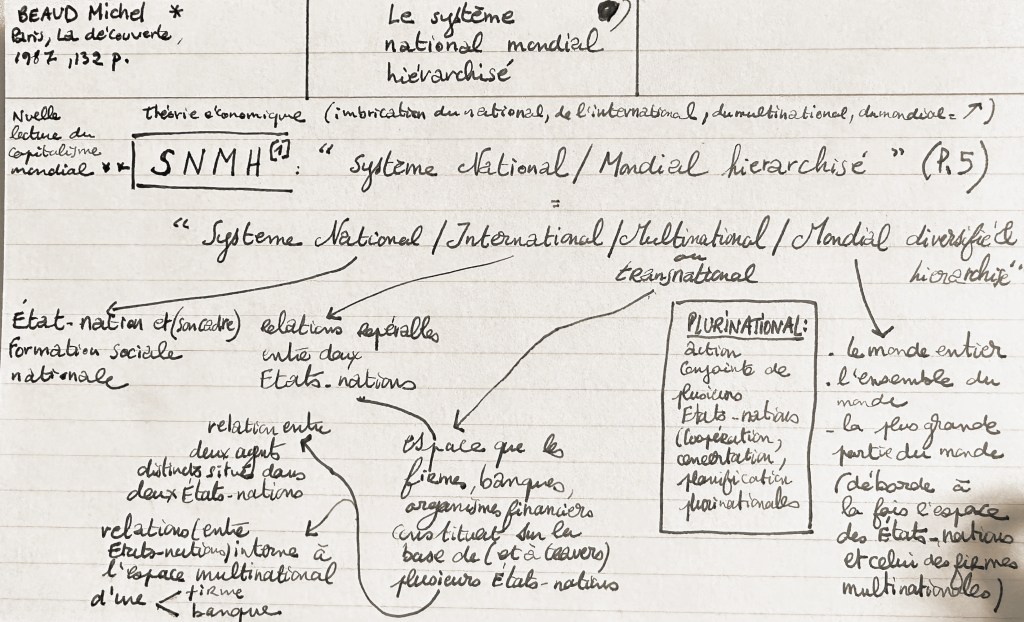 BEAUD Michel *
Paris, La découverte,
1987, 132 p.
Le système
national mondial
hiérarchisé
Nvelle
lecture du
capitalisme
mondial **
théorie économique (imbrication du national, de l'international, du multinational, du mondial = ↗)
SNMH [1] : "Système National/Mondial hierarchisé" (P.5)
=
"Systeme National/International/Multinational/Mondial diversifié &
hierarchisé"
ou
transnational
État-nation et (son cadre)
formation sociale
nationale
relations repérables
entre deux
Etats-nations
relation entre
deux agent
distincts situé dans
deux États-nations
relations (entre
Etats-nations) interne à
l'espace multinational
d'une < firme
banque
espace que les
firmes, banques,
organismes financiers
constituent sur la
base de (et à travers)
plusieurs États-nations
PLURINATIONAL:
action
conjointe de
plusieurs
Etats-nations
(coopération,
concertation,
planification
plurinationales
. le monde entier
. l'ensemble du
monde
- la plus grande
partie du monde
(déborde à
la fois l'espace
des États-nations
et celui des firmes
multinationales)